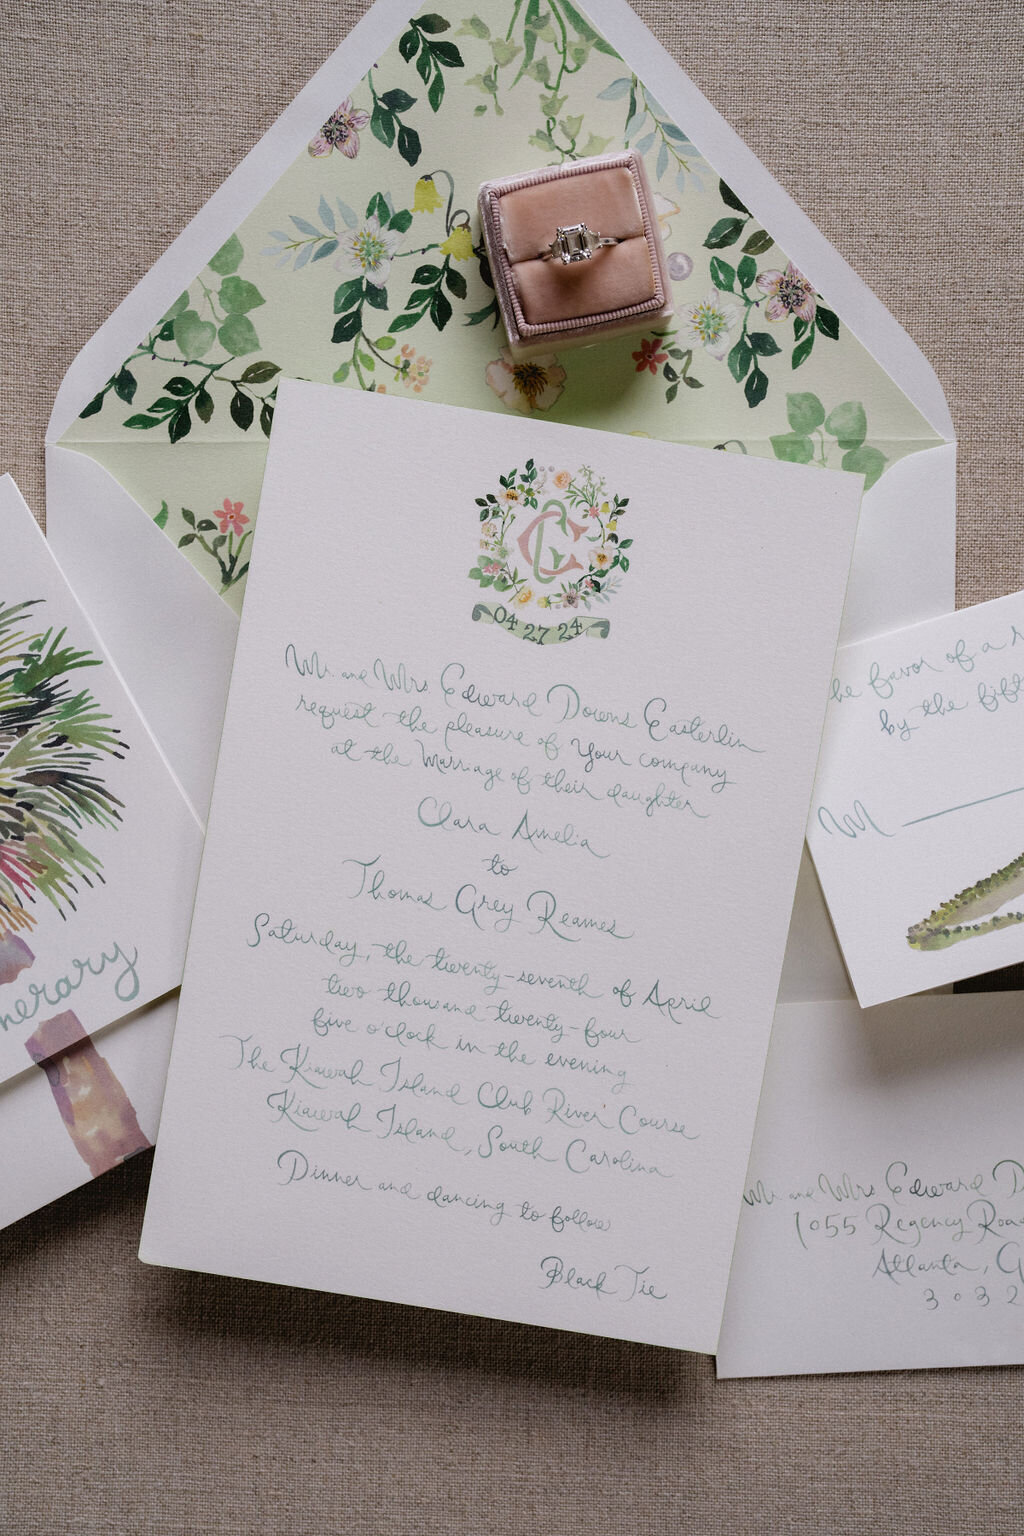 04 27 24
Mr. and Mrs. Edward Downs Easterlin
request the pleasure of your company
at the Marriage of their daughter
Clara Amelia
to
Thomas Grey Reames
Saturday, the twenty-seventh of April
two thousand twenty-four
five o'clock in the evening
The Kiawah Island Club River Course
Kiawah Island, South Carolina
Dinner and dancing to follow
Black Tie
nerary
he favor of a r
by the fift
M
Mr. and Mrs. Edward D
1055 Regency Road
Atlanta, G
3032